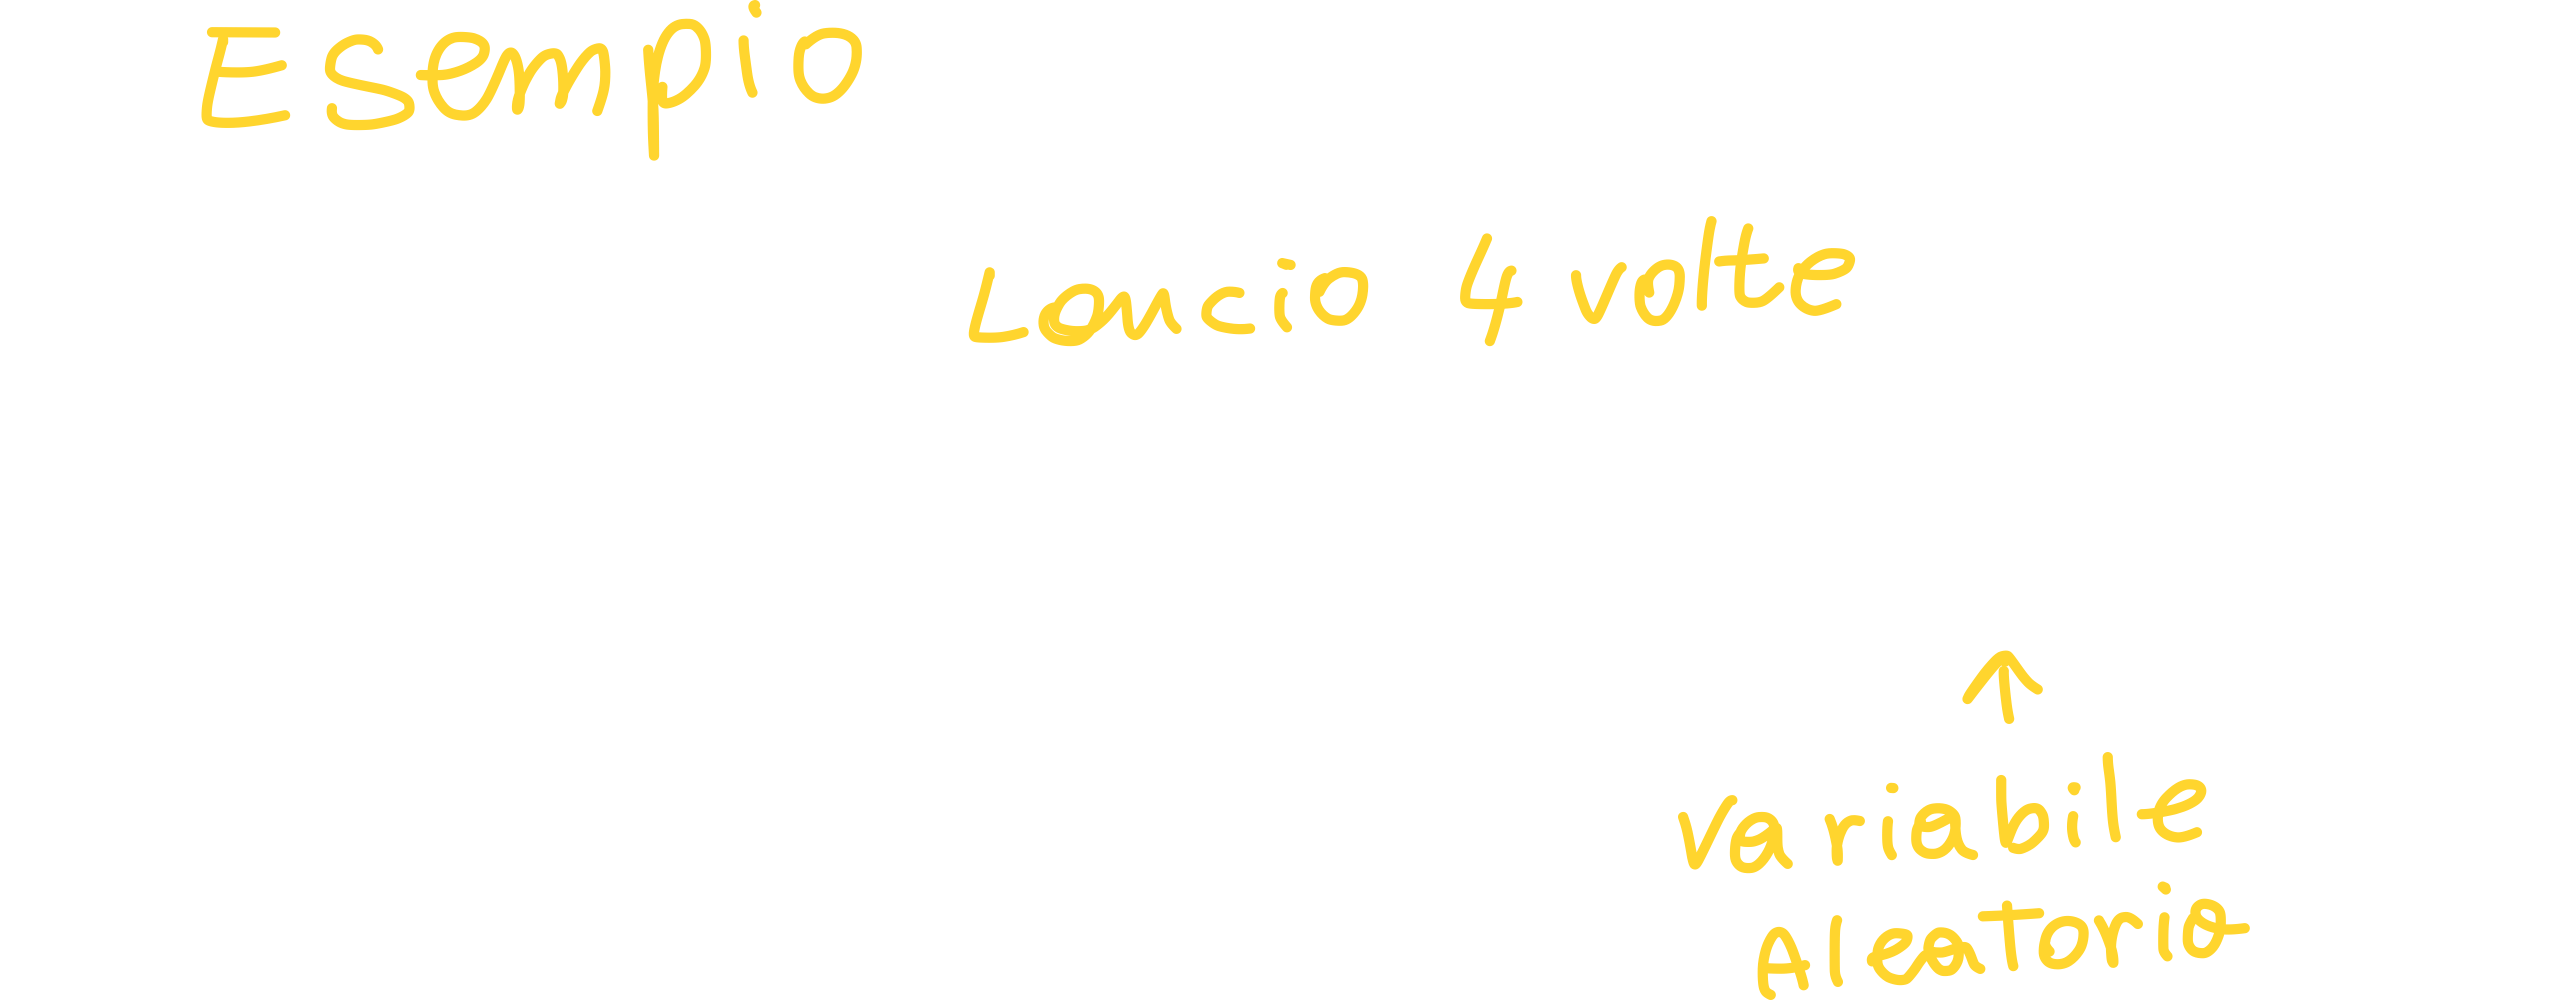 Esempio
Lancio 4 volte
↑
Variabile
Aleatoria